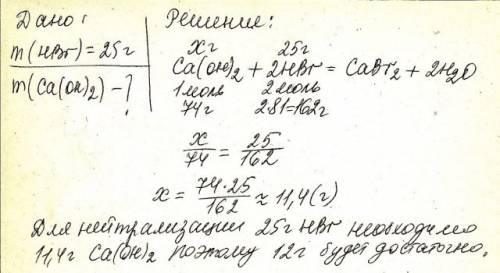 Дано: Решение:
m(HBr)=25г
m(Ca(OH)₂)-?
xг 25г
Ca(OH)₂+2HBr=CaBr₂+2H₂O
1моль 2моль
74г 2·81=162г
x/74 = 25/162
x = 74·25/162 ≈ 11,4(г)
Для нейтрализации 25г HBr необходимо
11,4г Ca(OH)₂ поэтому 12г будет достаточно.